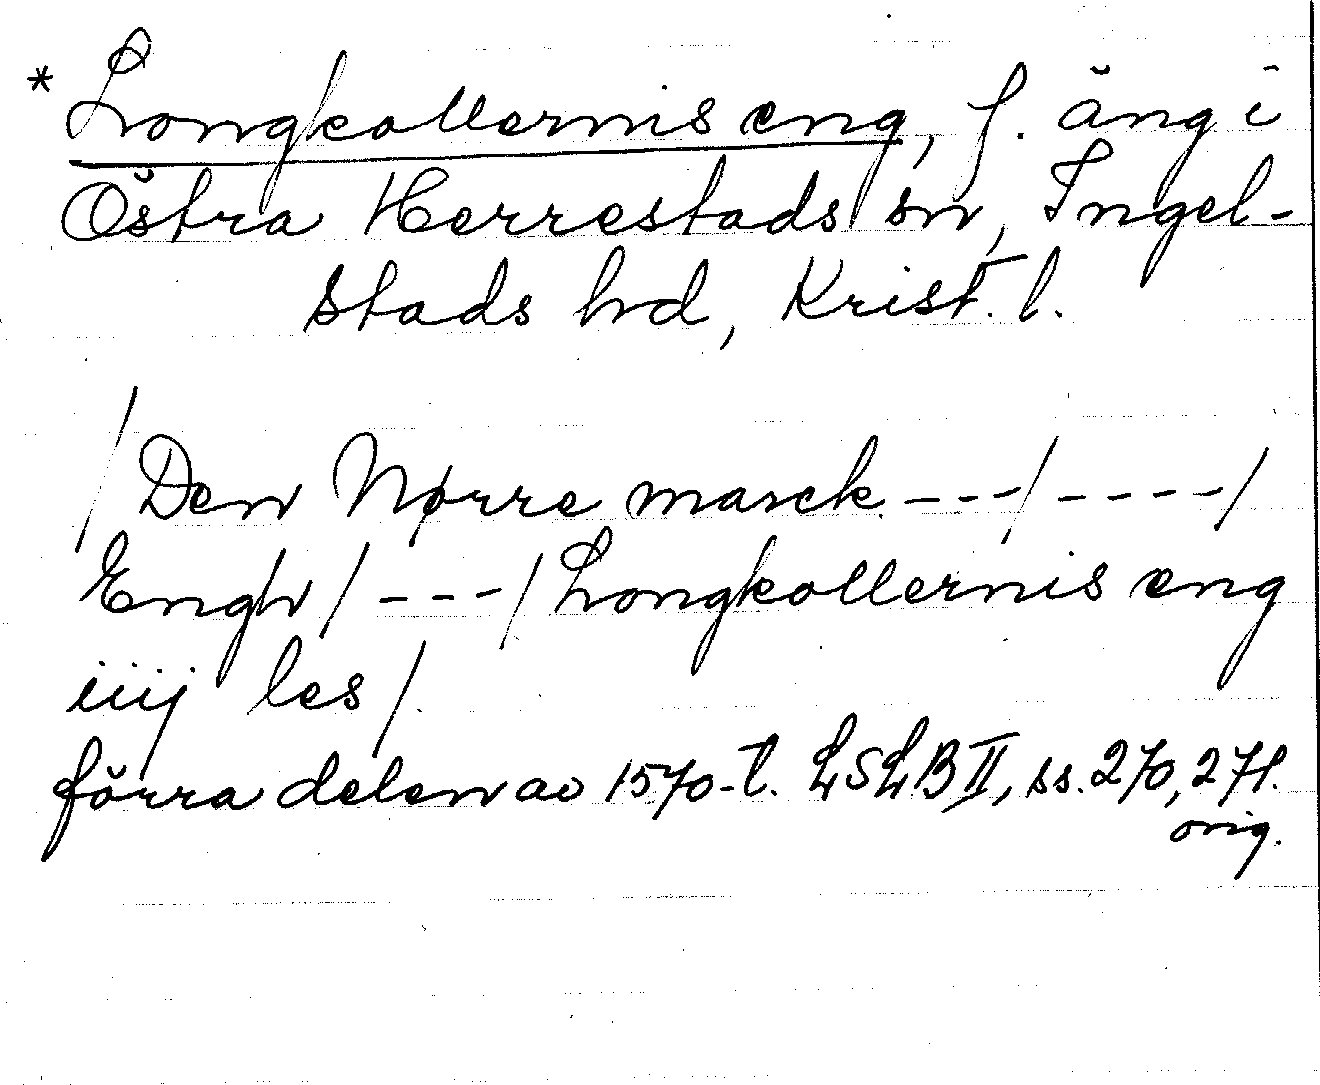 * Longkollernis eng, f. äng i
Östra Herrestads sn, Ingel-
stads hd, Krist. l.
/Den Nørre marck ---/----/
Engh/---/Longkollernis eng
iiij les/
förra delen av 1570-t. LSLB II, ss. 270, 271.
orig.